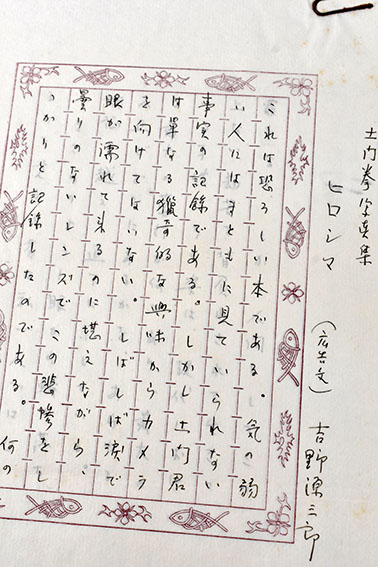 土門拳写真集
ヒロシマ
(広告文) 吉野源三郎
これは恐ろしい本である。気の弱
い人にはまともに見ていられない
事実の記録である。しかし土門君
は単なる獵奇的な興味からカメラ
を向けてはいない。しばしば涙で
眼が濡れて来るのに堪えながら、
曇りのないレンズでこの悲惨をし
っかりと記録したのである。何の